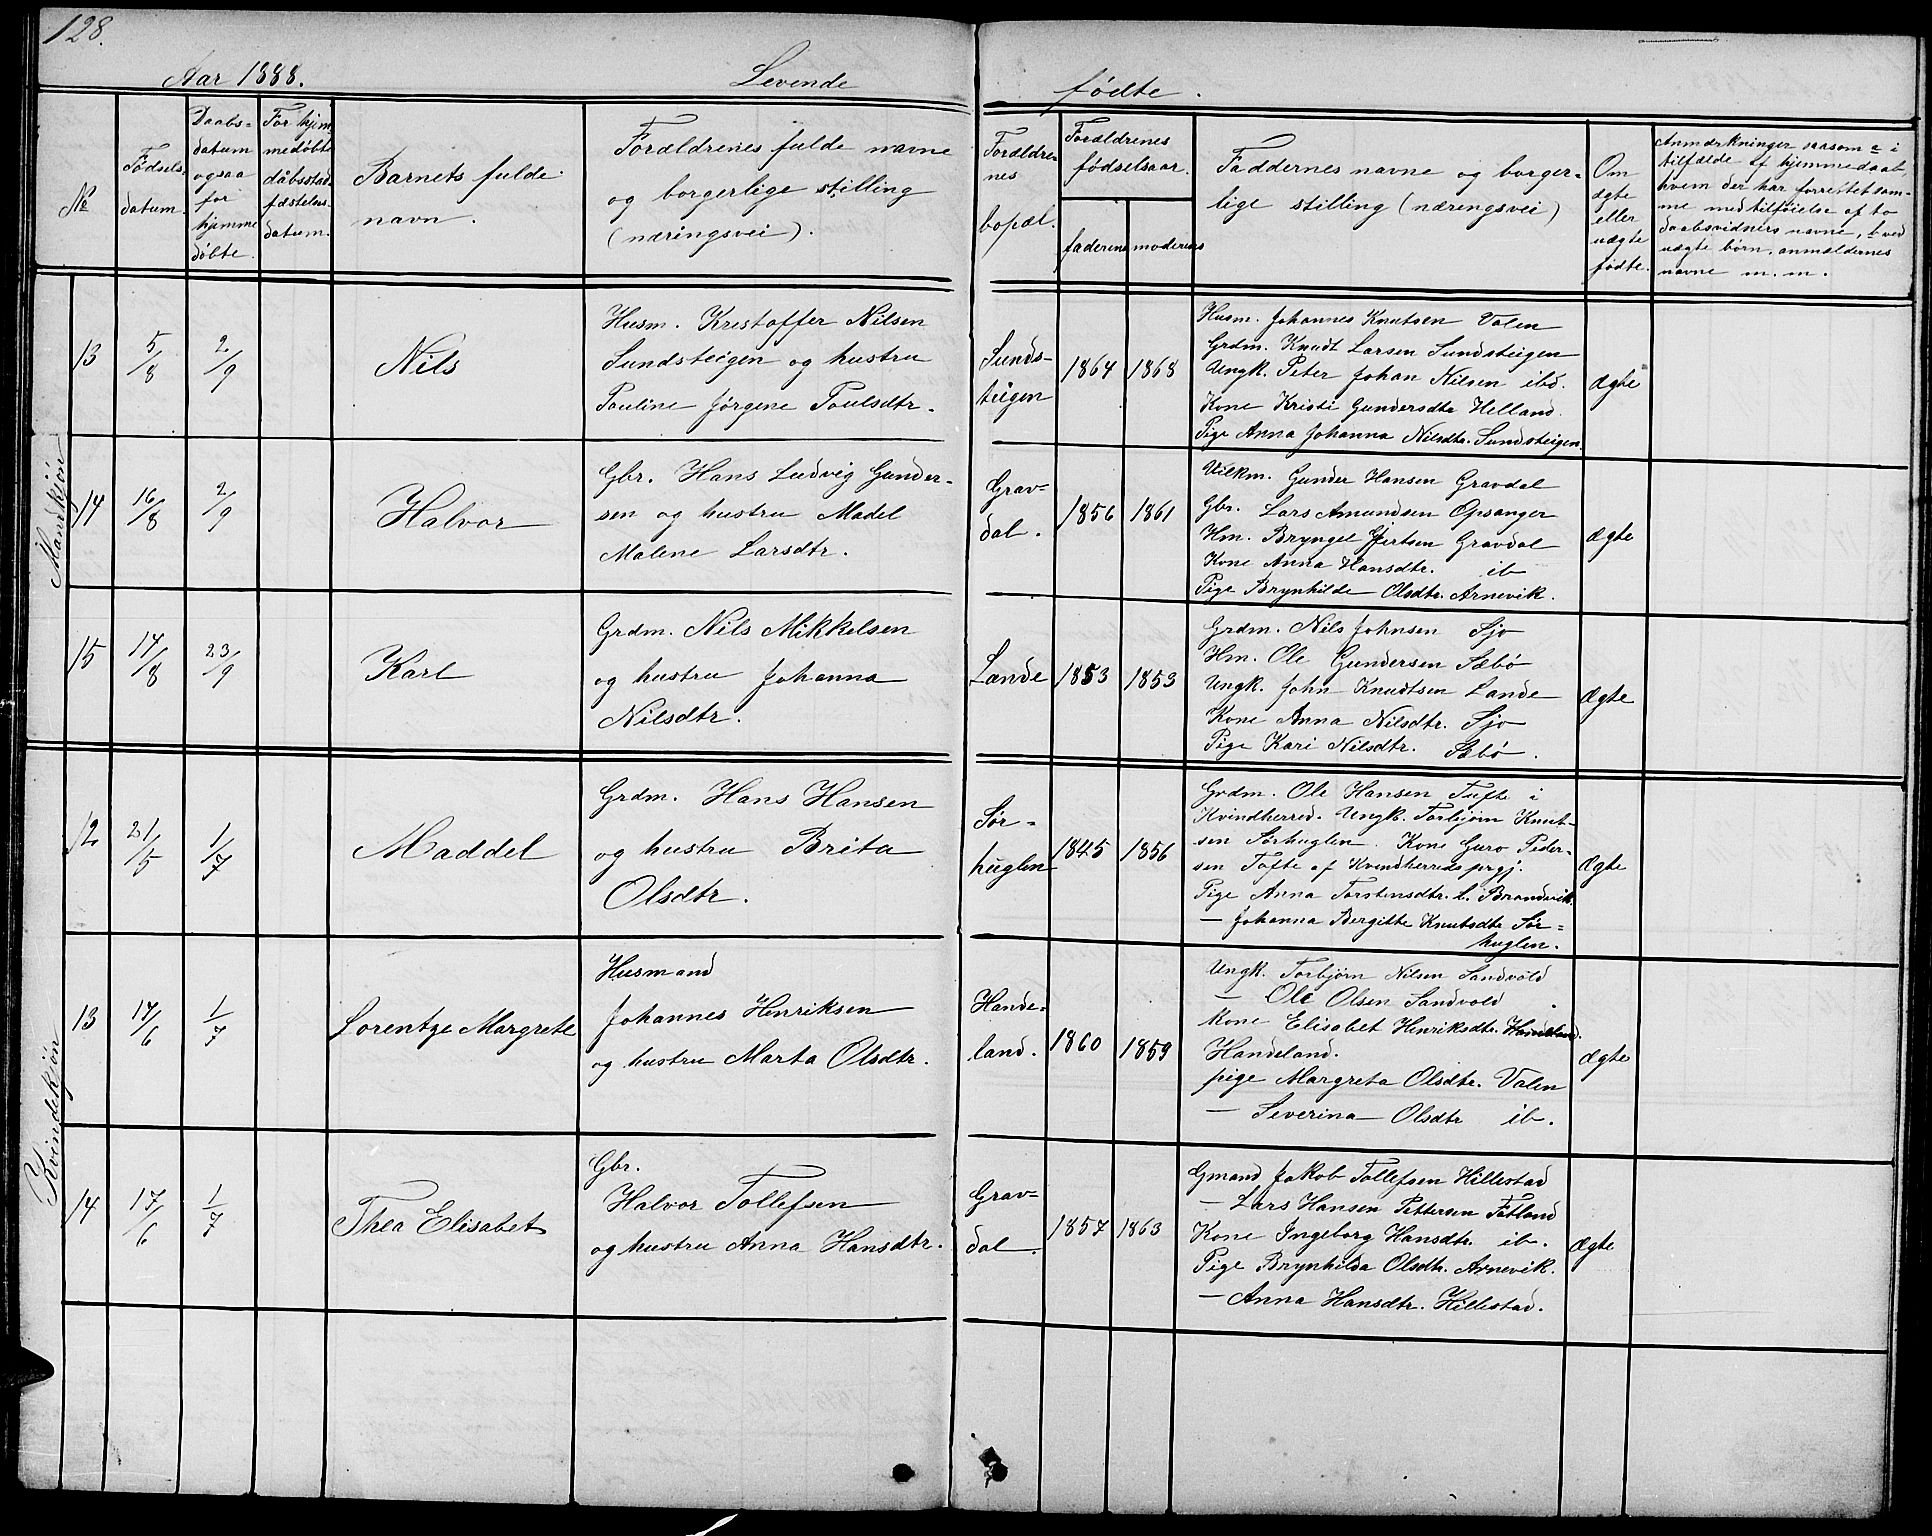 128.
Aar 1888.
Levende
fødte.
№
Fødsels-
datum.
Daabs-
datum
ogsaa
for
hjemme
døbte.
For hjem
medøbte
dåbsstad
fæstelses
datum.
Barnets fulde
navn.
Forældrenes fulde navne
og borgerlige stilling
(næringsvei).
Forældre-
nes
bopæl.
Forældrenes
fødselsaar.
faderens
moderens
Faddernes navne og borger-
lige stilling (næringsvei)
Om
ægte
eller
uægte
fødte.
Anmærkninger saasom a i
tilfælde af hjemmedaab,
hvem der har forrettet sam-
me med tilføielse af to
daabsvidners navne, b ved
uægte børn, anmældernes
navne m. m.
Mandkjøn
13
5/8
2/9
Nils
Husm. Krestoffer Nilsen
Sundsteigen og hustru
Pouline Jørgene Poulsdtr.
Sunds-
teigen
1864
1868
Husm. Johannes Knutsen Valen
Grdm. Knudt Larsen Sundsteigen
Ungk. Peter Johan Nilsen ibd.
Kone Kristi Gundersdtr Helland.
Pige Anna Johanna Nilsdtr. Sundsteigen
ægte
14
16/8
2/9
Halvor
Gbr. Hans Ludvig Gunder-
sen og hustru Madel
Malene Larsdtr.
Grav-
dal.
1856
1861
Vilkm. Gunder Hansen Gravdal
Gbr. Lars Amundsen Opsanger
Hm. Bryngel Gjertsen Gravdal
Kone Anna Hansdtr. ib
Pige Brynhilde Olsdtr. Arnevik.
ægte
15
17/8
23/9
Karl
Grdm. Nils Mikkelsen
og hustru Johanna
Nilsdtr.
Lande
1853
1853
Grdm. Nils Johnsen Sjo
Hm. Ole Gundersen Sæbø
Ungk. John Knudtsen Lande
Kone Anna Nilsdtr. Sjo
Pige Kari Nilsdtr. Sæbø.
Ægte
Kvindekjøn
12
21/5
1/7
Maddel
Grdm. Hans Hansen
og hustru Brita
Olsdtr.
Sør-
huglen
1845
1856
Grdm. Ole Hansen Tufte i
Kvindherred. Ungk. Torbjørn Knut-
sen Sørhuglen. Kone Guro Peder-
sen Tofte af Kvindherreds prgj.
Pige Anna Torstensdtr. l. Brandvik.
— Johanna Bergitte Knutsdtr Sør-
huglen.
Ægte
13
14/6
1/7
Lorentze Margrete
Husmand
Johannes Henriksen
og hustru Marta Olsdtr.
Hande-
land.
1860
1859
Ungk. Torbjørn Nilsen Sandvold
— Ole Olsen Sandvold
Kone Elisabet Henriksdtr. Handeland.
Handeland.
pige Margreta Olsdtr. Valen
— Severina Olsdtr ib.
ægte
14
17/6
1/7
Thea Elisabet
Gbr.
Halvor Tollefsen
og hustru Anna Hansdtr.
Grav-
dal.
1857
1863
Gmand Jakob Tollefsen Hillestad
— Lars Hansen Pettersen Fatland
Kone Ingeborg Hansdtr. ib.
Pige Brynhilda Olsdtr. Arnevik.
— Anna Hansdtr. Hillestad.
Ægte